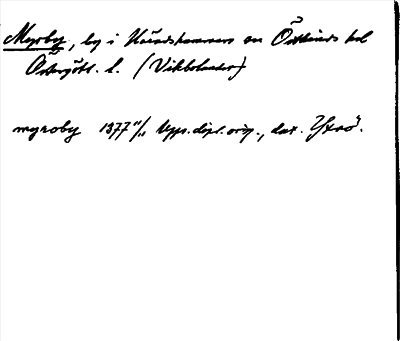 Myrby, by i Häradshammars sn Östkinds hd
Östergötl. l. (Vikbolandet)
myroby 1377 11/11 Upps. dipl. orig., dat. Yxnö.